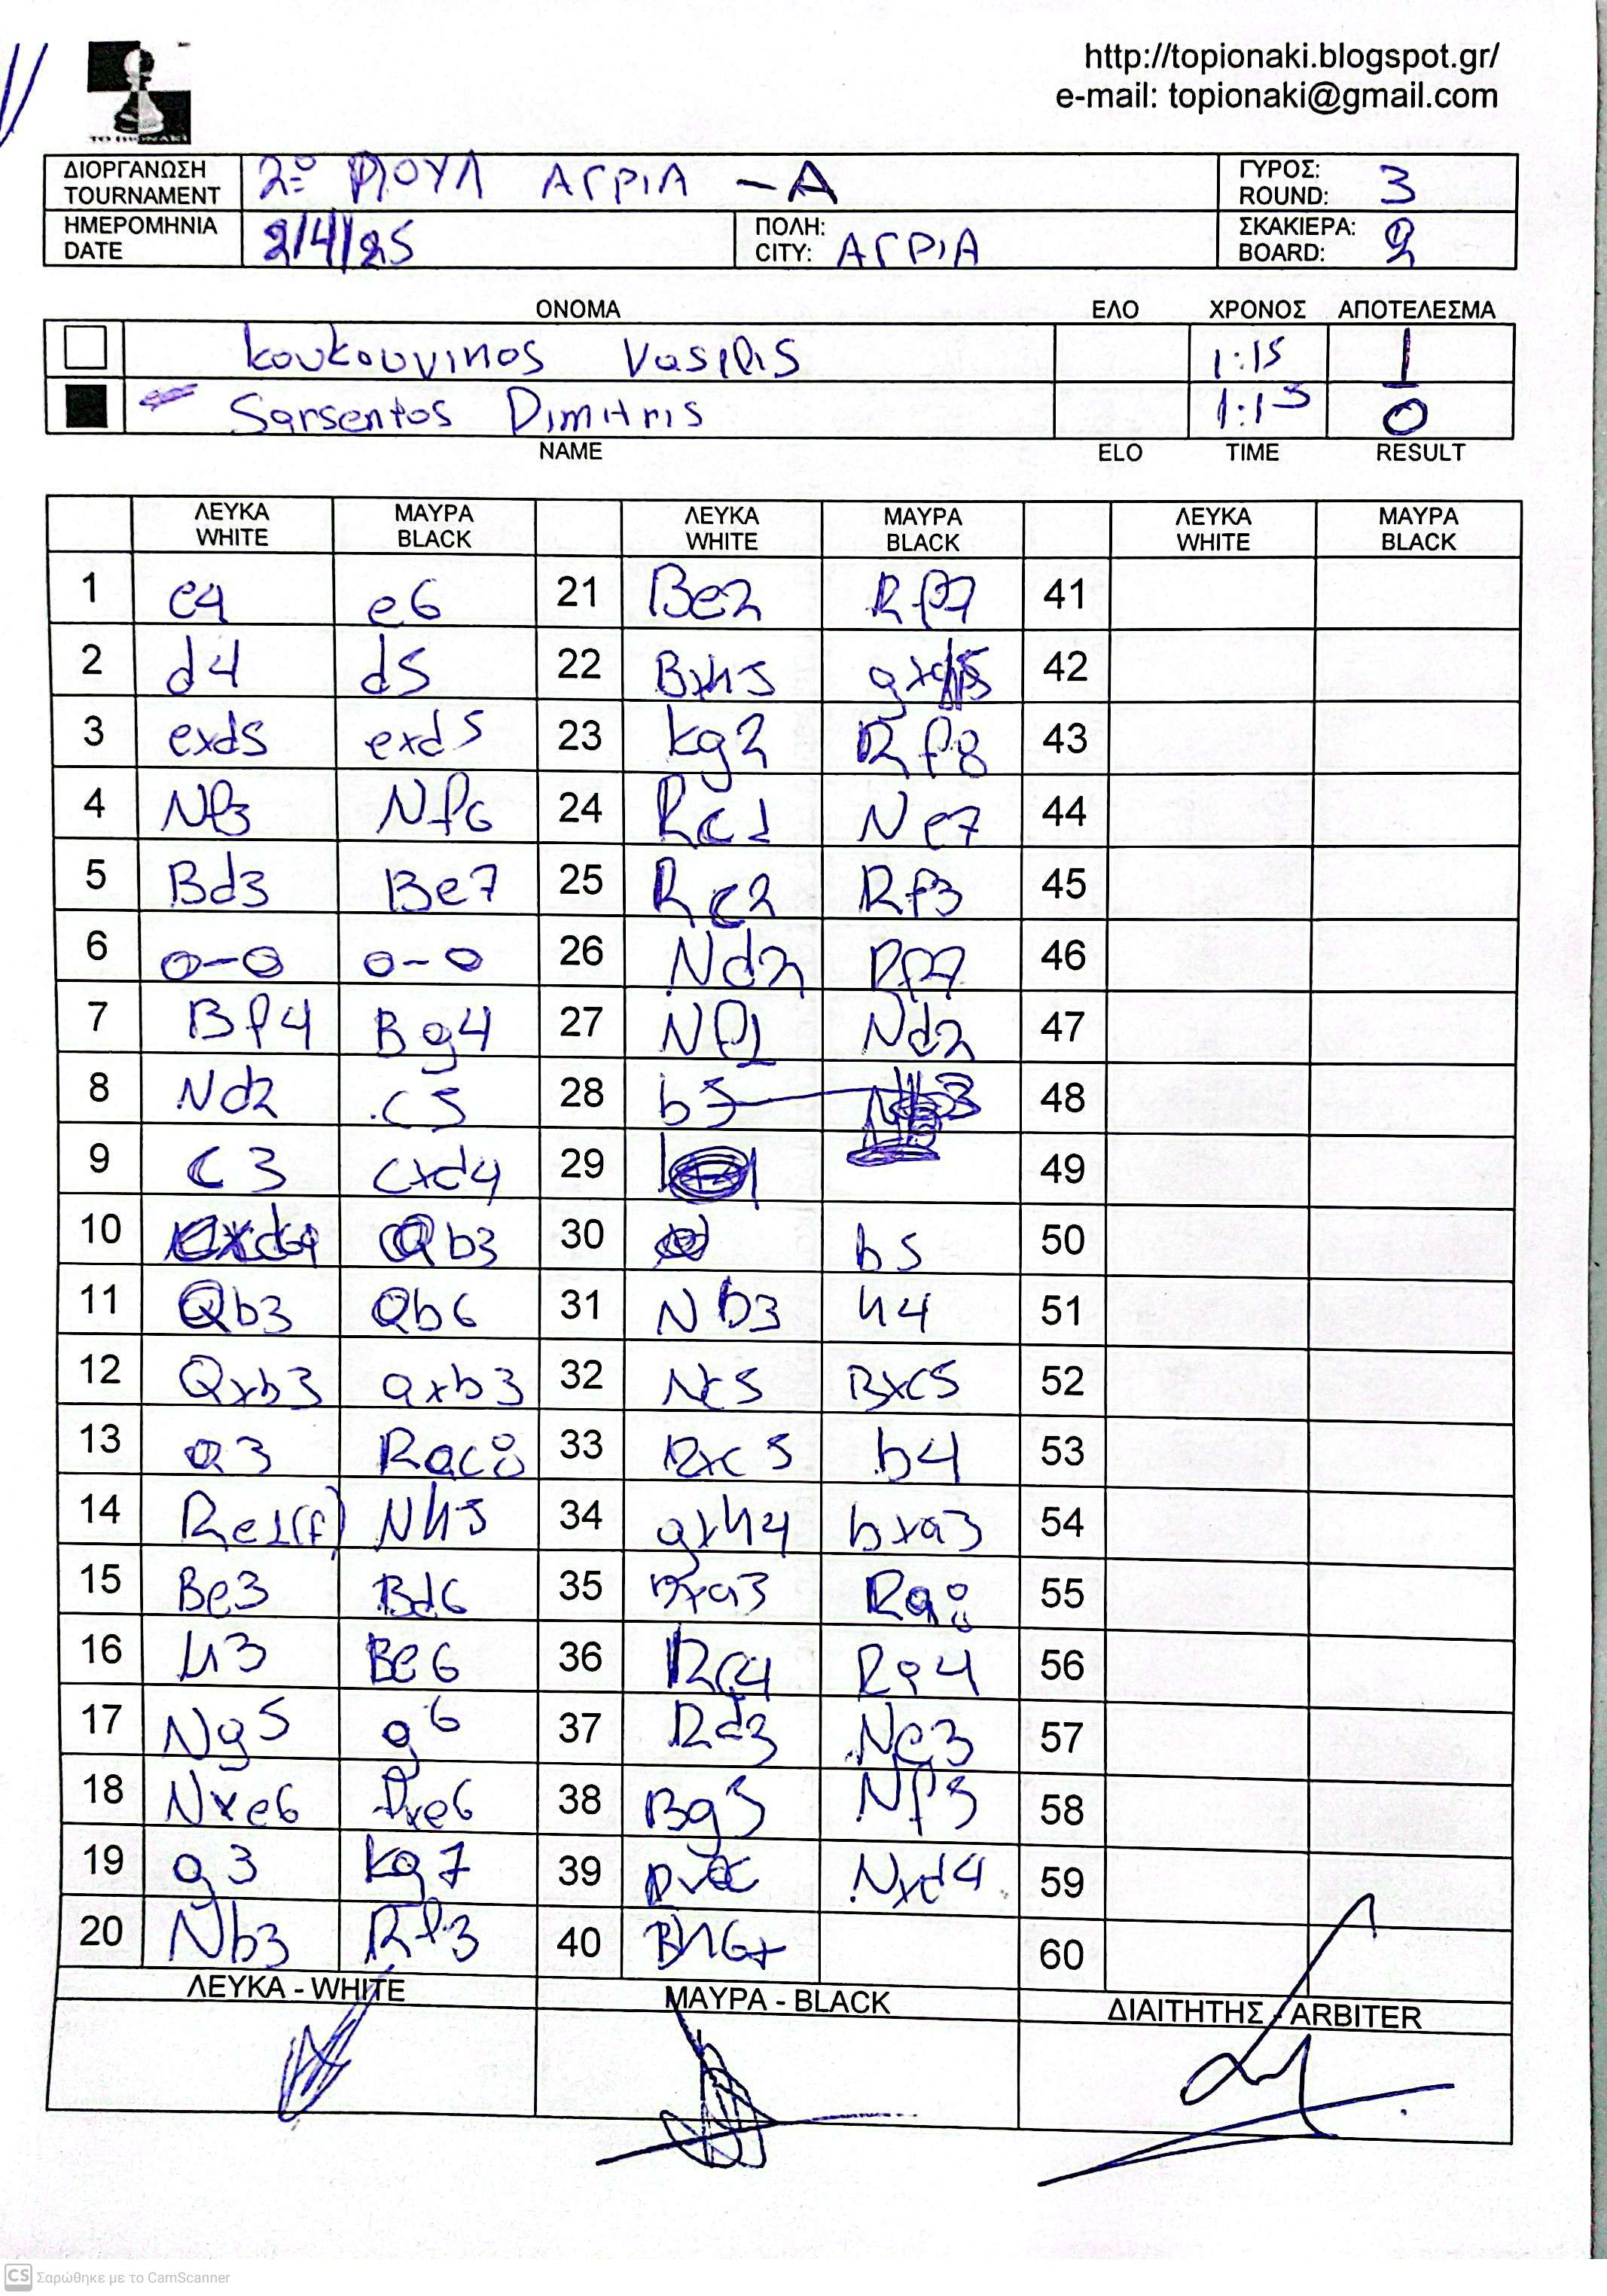 http://topionaki.blogspot.gr/
e-mail: topionaki@gmail.com
ΤΟ ΠΙΟΝΑΚΙ
ΔΙΟΡΓΑΝΩΣΗ TOURNAMENT 2ο ΑΓΡΙΑ - Α ΓΥΡΟΣ: ROUND: 3
ΗΜΕΡΟΜΗΝΙΑ DATE 2/4/25 ΠΟΛΗ: CITY: ΑΓΡΙΑ ΣΚΑΚΙΕΡΑ: BOARD: 2
ΟΝΟΜΑ ΕΛΟ ΧΡΟΝΟΣ ΑΠΟΤΕΛΕΣΜΑ
Koukouvinos Vasilis 1:15 1
Sarsentos Dimitris 1:15 0
NAME ELO TIME RESULT
ΛΕΥΚΑ WHITE ΜΑΥΡΑ BLACK ΛΕΥΚΑ WHITE ΜΑΥΡΑ BLACK ΛΕΥΚΑ WHITE ΜΑΥΡΑ BLACK
1 e4 e6 21 Be2 Rf7 41
2 d4 d5 22 Bxh5 42
3 exd5 exd5 23 Kg2 Rf8 43
4 Nf3 Nf6 24 Rc1 Ne7 44
5 Bd3 Be7 25 Rc2 Rf3 45
6 0-0 0-0 26 Nd2 Rf7 46
7 Bf4 Bg4 27 Nf1 Nd2 47
8 Nd2 c5 28 b5 48
9 c3 cxd4 29 49
10 cxd4 Qb3 30 b5 50
11 Qb3 Qb6 31 Nb3 h4 51
12 Qxb3 axb3 32 Nc5 Bxc5 52
13 a3 Rac8 33 Rxc5 b4 53
14 Re1(f) Nh5 34 gxh4 bxa3 54
15 Be3 Bd6 35 bxa3 Ra8 55
16 h3 Be6 36 Rc1 Ra4 56
17 Ng5 g6 37 Rd3 Nc3 57
18 Nxe6 fxe6 38 Bg5 Nf5 58
19 g3 Kg7 39 Nxd4 59
20 Nb3 Rf3 40 Bh6+ 60
ΛΕΥΚΑ - WHITE ΜΑΥΡΑ - BLACK ΔΙΑΙΤΗΤΗΣ - ARBITER
CS Σαρώθηκε με το CamScanner